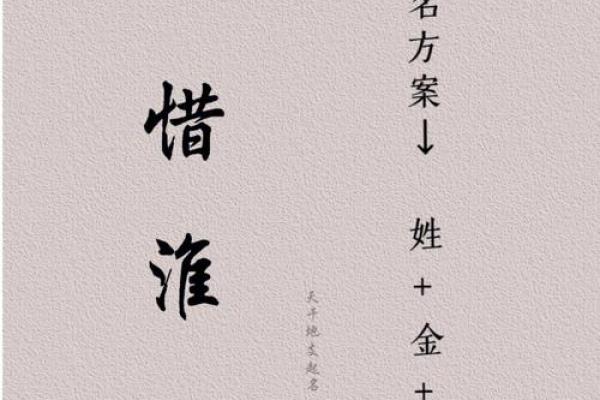 名方案↓ 姓+金+
天干地支起名
惜淮